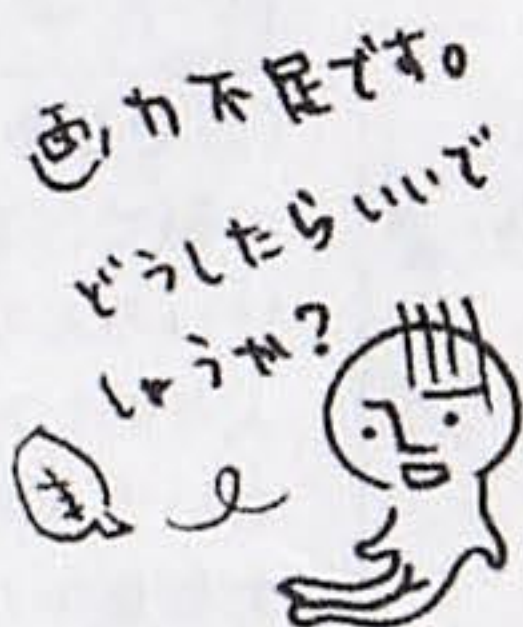 画力不足です。
どうしたらいいで
しょうか?